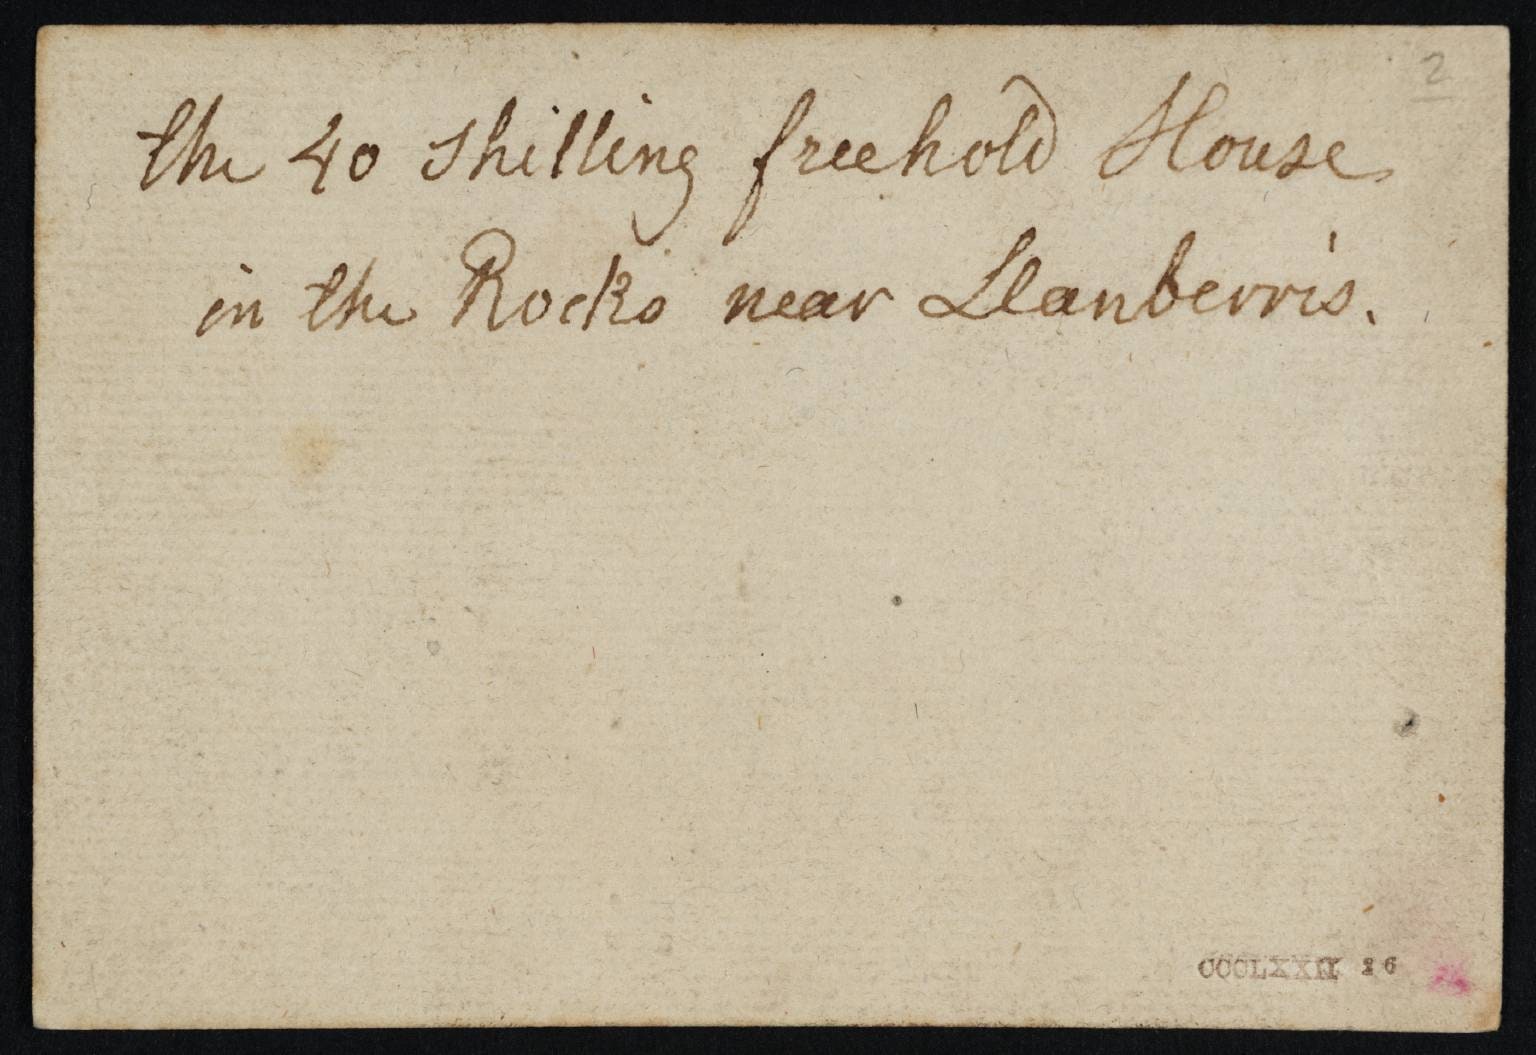 2
the 40 shilling freehold House
in the Rocks near Llanberris.
CCCLXXII 26